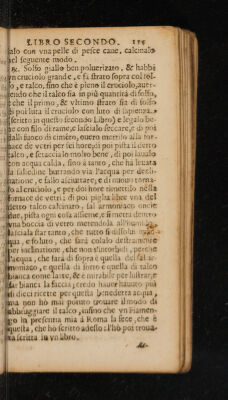 LIBRO SECONDO. 115
alo con vna pelle di pesce cane, calcinalo
nel seguente modo.
℞. Solfo giallo ben poluerizato, & habbi
vn cruciolo grande, e fa strato sopra col sol-
fo, e talco, fino che è pieno il crociolo, auer-
tendo che il talco sia in più quantità di solfo,
e che il primo, & vltimo strato sia di solfo
di poi luta il cruciolo con luto di sapienza
scritto in questo secondo Libro) e legalo be-
ne con filo di rame, e lascialo seccare, e di poi
dalli fuoco di cimiero, euero mettilo alla for-
nace de vetri per sei hore, di poi pista il detto
talco, e setaccialo molto bene, di poi laualo
con acqua calda, sino à tanto, che hà leuata
la salsedine buttando via l'acqua per decli-
natione, e fallo asciuttare, e di nuouo torna-
lo al cruciolo, e per doi hore rimettilo nella
fornace de vetri; di poi piglia libre vna del
detto talco calcinato, sal armoniaco oncie
due, pista ogni cosa assieme, e si metti dentro
vna boccia di vetro mettendola all'humido,
lasciala star tanto, che tutto si dissolua in ac-
qua, e soluto, che sarà colalo destramente
per inclinatione, che non s'intorbidi, perche
l'acqua, che sarà di sopra è quella del sal ar-
moniaco, e quella di sotto è quella di talco
bianca come latte, & è mirabile per lustrar, e
far bianca la faccia; credo hauer hauuto più
di dieci ricette per questa benedetta acqua,
ma non hò mai potuto trouare il modo di
abbruggiare il talco, insino che vn Fiamen-
go in presenza mia à Roma la fece, che è
questa, che hò scritto adesso: l'hò poi troua-
ta scritta in vn libro.